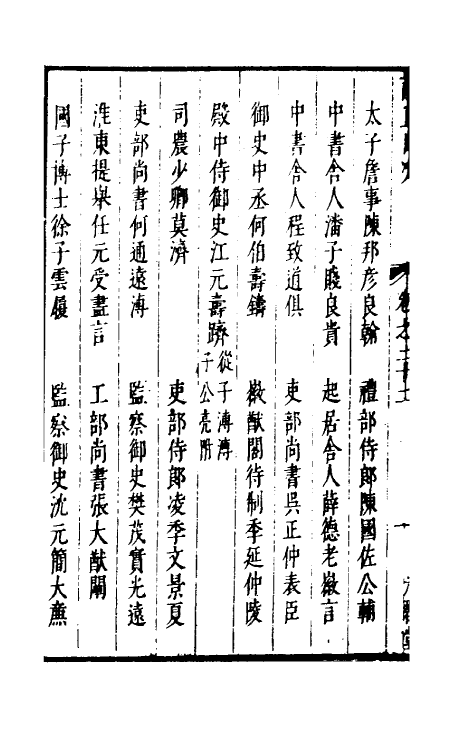 太子詹事陳邦彥良翰　禮部侍郎陳國佐公輔
中書舍人潘子賤良貴　起居舍人薛德老徽言
中書舍人程致道俱　吏部尚書吳正仲表臣
御史中丞何伯壽鑄　徽猷閣待制季延仲陵
殿中侍御史江元壽躋從子溥溥子公亮附
司農少卿莫濟　吏部侍郎凌季文景夏
吏部尚書何通遠溥　監察御史樊茂實光遠
淮東提舉任元受盡言　工部尚書張大猷闡
國子博士徐子雲履　監察御史沈元簡大廉
卷之二十